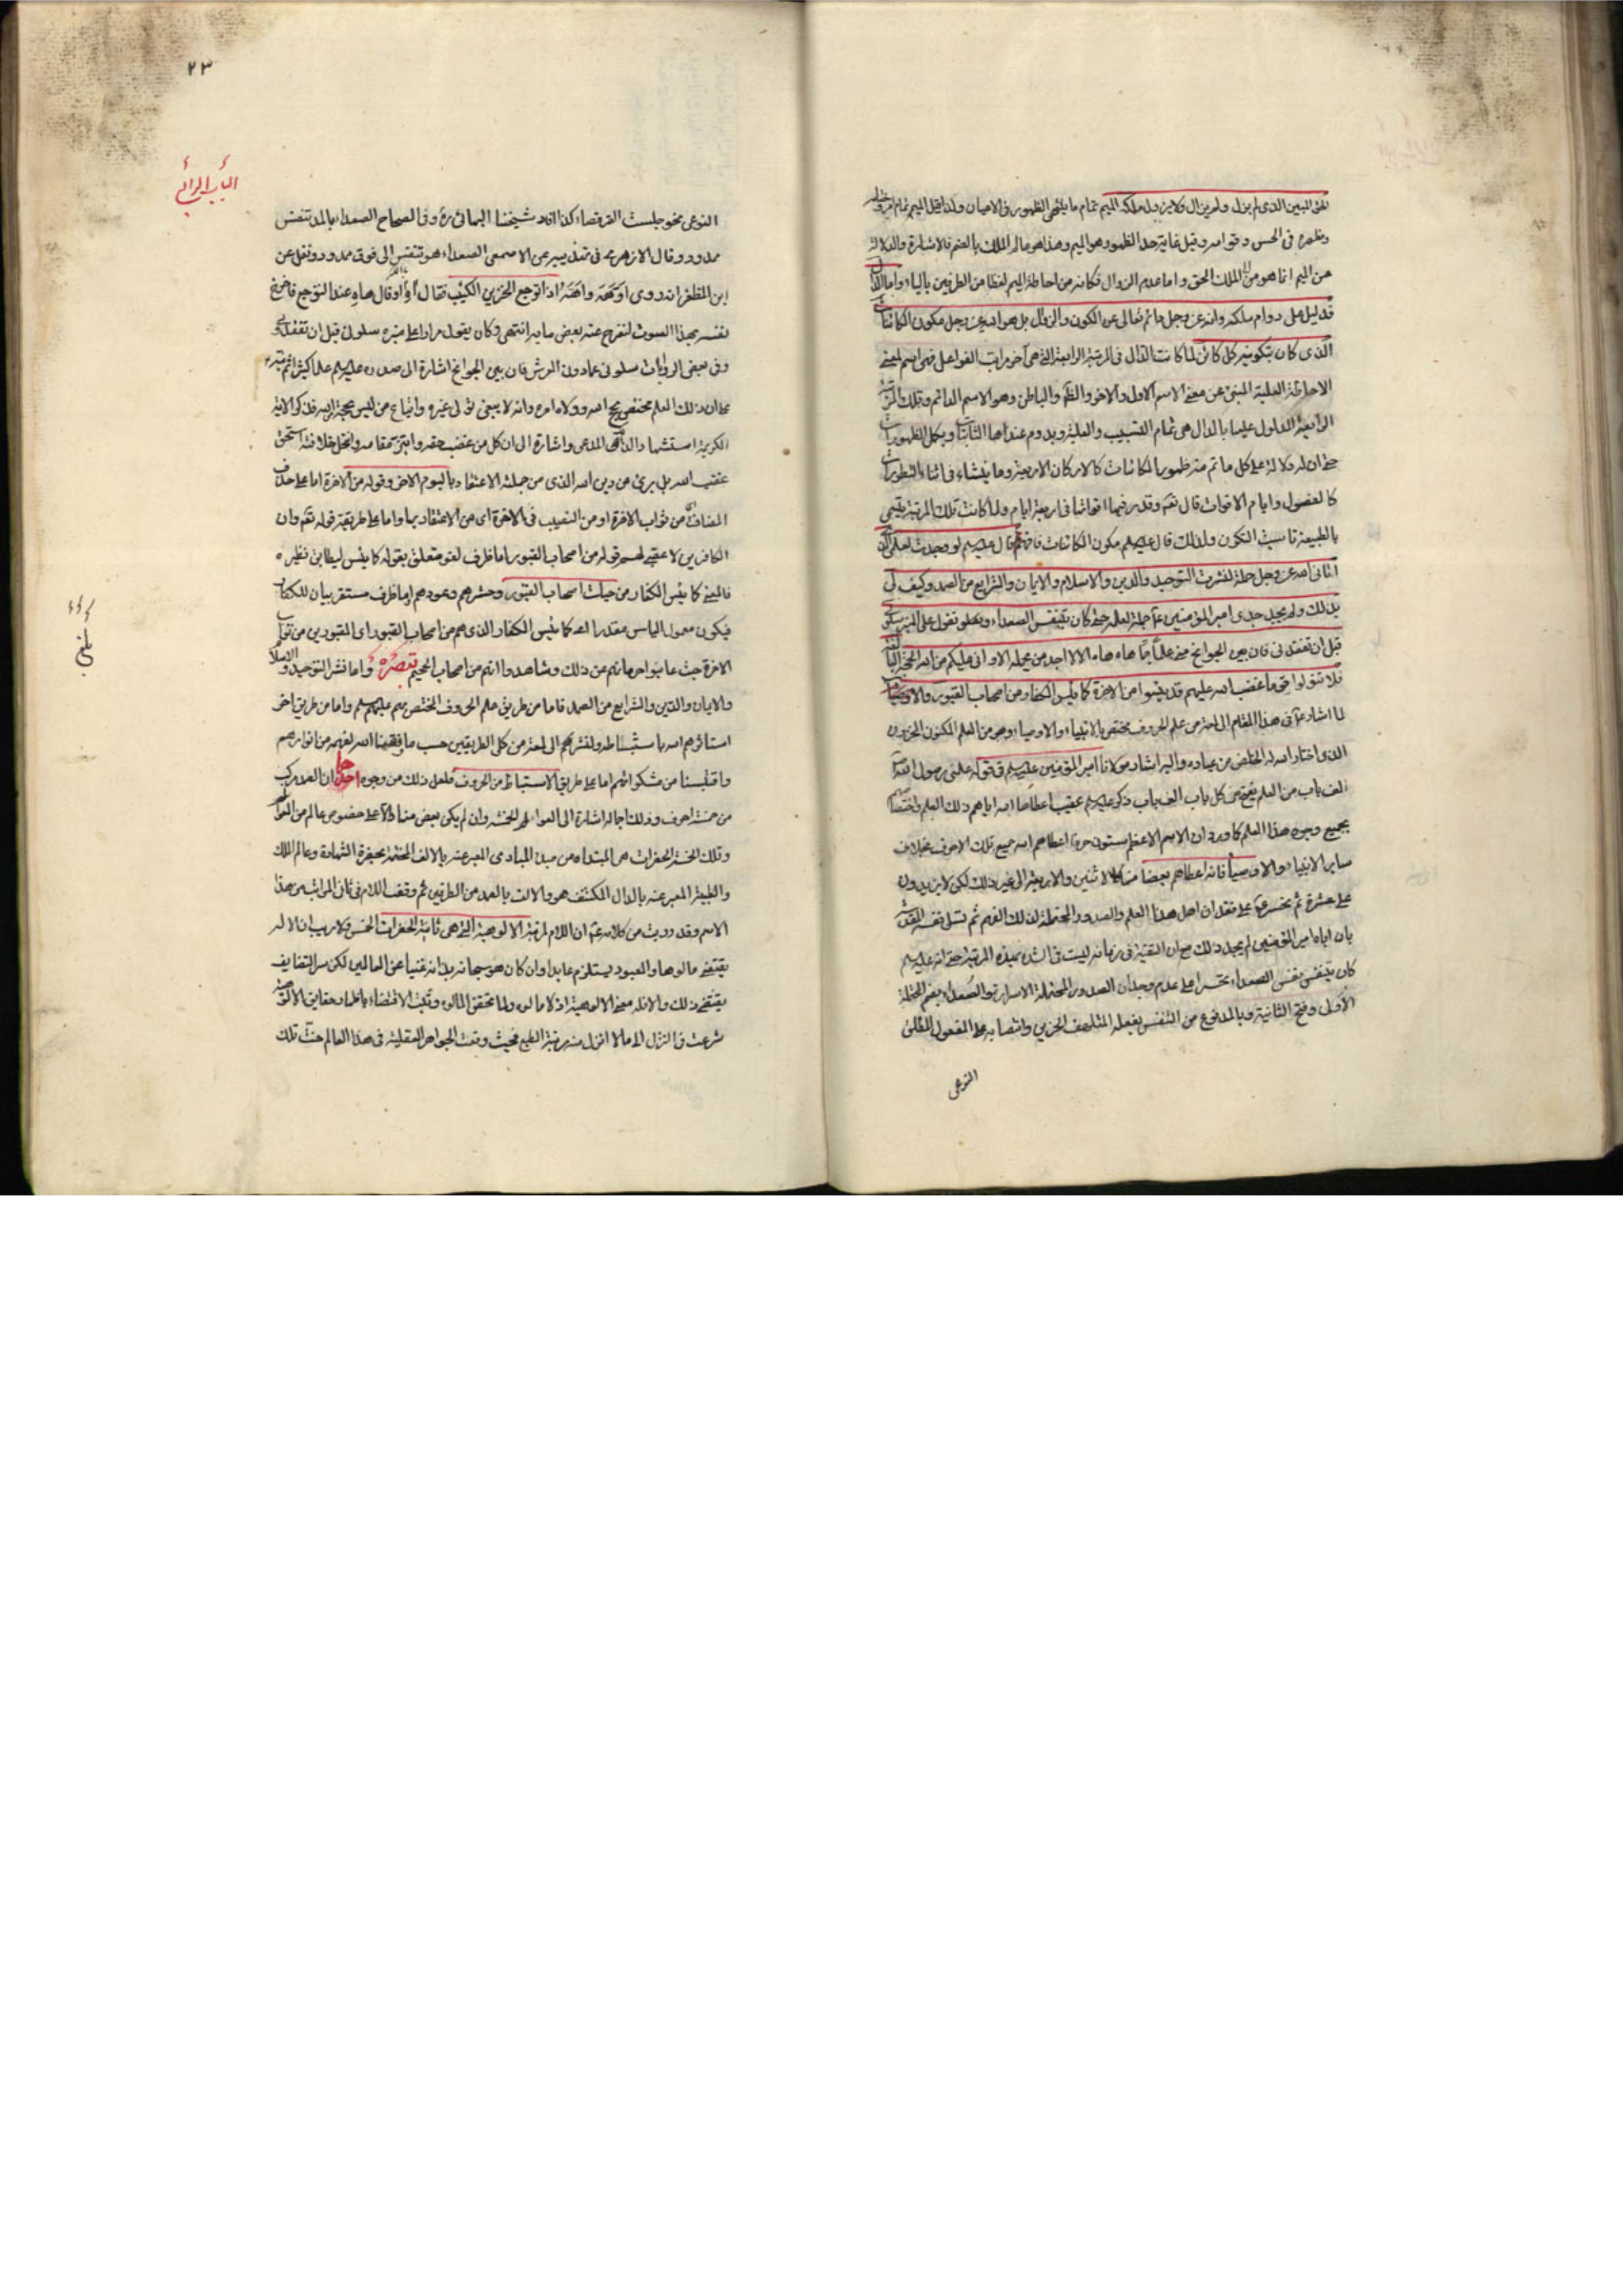 الحق المبين الذي لم يزل ولم يزال ولا يزول ملكه الميم تمام ما ينتهي الظهور في الاعيان ولذا قيل الميم تمام
وظهوره في الحس وقوامه وقيل غاية حد الظهور هو الميم وهذا هو عالم الملك بالضم فالاشارة والدلالة
من الميم انما هو من الملك الحق واما عدم الزوال فكانه من احاطة الميم لفظا من الطرفين بالياء واما الدال
فدليل على دوام ملكه وانه عز وجل دائم تعالى عن الكون والزوال بل هو الله عز وجل مكون الكائنات
الذي كان بتكوينه كل كائن لما كانت الدال في المرتبة الرابعة التي هي آخر مراتب الفواعل فهي اسم لمعنى
الاحاطة العلية المنبئ عن معنى الاسم الاول والآخر والظاهر والباطن وهو الاسم الدائم وتلك المرتبة
الرابعة المدلول عليها بالدال هي تمام التسبيب والعلية ويدوم عندها الثابتات ويكمل الظهورات
حتى ان له دلالة على كل ما تم منه ظهور الكائنات كالاركان الاربعة وما ينشاء في اثناء التطورات
كالفصول وايام الاقوات قال تعم وقدر فيها اقواتها في اربعة ايام ولما كانت تلك المرتبة يسمى
بالطبيعة ناسبت التكون ولذلك قال عليه السلم مكون الكائنات فافهم ثم قال عليه السلم لو وجدت لعلمي الذي
آتاني الله عز وجل حملة لنشرت التوحيد والدين والاسلام والايمان والشرايع من الصمد وكيف لي
بذلك ولم يجد جدي امير المؤمنين ع حملة لعلمه حتى كان يتنفس الصعداء ويقول على المنبر سلوني
قبل ان تفقدوني فان بين الجوانح مني علما جما هاه هاه الا لا اجد من يحمله الا واني عليكم من الله الحجة البالغة
فلا تتولوا قوما غضب الله عليهم قد يئسوا من الآخرة كما يئس الكفار من اصحاب القبور
لما اشار ع في هذا المقام الى لمعة من علم الحروف مختص بالانبياء والاوصياء وهو من العلم المكنون المخزون
الذي اختار الله له الخلص من عباده واليه اشار مولانا امير المؤمنين عليه السلم في قوله علمني رسول الله
الف باب من العلم يفتح من كل باب الف باب ذكر عليه السلم عقيب اعطاء الله اياهم ذلك العلم
بجميع وجوه هذا العلم كما ورد ان الاسم الاعظم ستون حرفا اعطاهم الله جميع تلك الاحرف بخلاف
ساير الانبياء والاوصياء فانه اعطاهم بعضا منها كالاثنين والاربعة الى غير ذلك لكن لا يزيدون
على عشرة ثم تحسر ع على فقد ان اهل هذا العلم والصدور المحتملة لذلك الفهم ثم تسلى نفسه
بان اباه امير المؤمنين لم يجد ذلك مع ان التقية في زمانه ليست في الشدة بهذه المرتبة حتى انه عليه السلم
كان يتنفس تنفس الصعداء تحسرا على عدم وجدان الصدور المحتملة الاسرار والصعداء بضم المهملة
الاولى وفتح الثانية وبالمد نوع من التنفس يفعله المتلهف الحزين وانتصابه على المفعول المطلق
النوعي
٢٣
الباب الرابع
النوعي نحو جلست القرفصاء كذا افاد شيخنا البهائي ره وفي الصحاح الصعداء بالمد تنفس
ممدود وقال الازهري في تفسير عن الاصمعي الصعداء هو تنفس الى فوق ممدود ونقل عن
ابن المظفر انه روى اوهه واهه اذا توجع الحزين الكئيب فقال آه او قال هاه عند التوجع فاخرج
نفسه بهذا الصوت لتفرج عنه بعض ما به انتهى وكان يقول مرارا على منبره سلوني قبل ان تفقدوني
وفي بعض الروايات سلوني عما دون العرش فان بين الجوانح اشارة الى صدره عليه السلم علما كثيرا ثم نبه
على ان ذلك العلم مختص بحجج الله وولاة امره وانه لا ينبغي تولي غيره واتباع من ليس بحجة الله فذكر الآية
الكريمة استشهادا لذلك المدعى واشارة الى ان كل من غصب حقه وابتز مقامه وانتحل خلافته استحق
غضب الله بل برئ من دين الله الذي من جملته الاعتقاد باليوم الآخر وقوله من الآخرة اما على حذف
المضاف من ثواب الآخرة او من النصيب في الآخرة اي من الاعتقاد بها واما على طريقة قوله تعم وان
الكافرين لا عقبى لهم قوله من اصحاب القبور اما ظرف لغو متعلق بقوله كما يئس ليطابق نظيره
فالمعنى كما يئس الكفار من حيات اصحاب القبور وحشرهم وعودهم واما ظرف مستقر بيان للكفار
فيكون معمول الياس مقدرا اي كما يئس الكفار الذي هم من اصحاب القبور اي المقبورين من ثواب
الآخرة حيث عاينوا حرمانهم عن ذلك وشاهدوا انهم من اصحاب الجحيم تبصرة واما نشر التوحيد والاسلام
والايمان والدين والشرايع من الصمد فاما من طريق علم الحروف المختص بهم عليهم السلم واما من طريق اخر
استاثرهم الله باستنباطه ولنشر الى لمعة من كلي الطريقين حسب ما وفقنا الله لفهمه من انوارهم
واقتبسنا من مشكوة اما على طريق الاستنباط من الحروف فلعل ذلك من وجوه احدها ان الصمد مركب
من خمسة احرف وذلك اجمالا اشارة الى العوالم الخمسة وان لم يكن بعض منها دالا على خصوص عالم من العوالم
وتلك الخمسة الحضرات هي المبتداة من مبدا المبادي المعبر عنه بالالف المختتمة بحضرة الشهادة وعالم الملك
والطبيعة المعبر عنه بالدال المكتنف هو والالف بالصمد من الطرفين ثم وقعت اللام في ثاني المراتب من هذا
الاسم وقد دريت من كلامه ع ان اللام لمرتبة الالوهية التي هي ثانية الحضرات الخمس ولا ريب ان الاله
يقتضي مالوها والمعبود يستلزم عابدا وان كان هو سبحانه بذاته غنيا عن العالمين لكن سر التضايف
يقتضي ذلك والا فلا معنى الالوهية اذ لا مالوه ولما تحقق المالوه وثبت الاقتضاء باظهار حقايق الالوهية
شرعت في النزول الى ما لا انزل منه مرتبة الطبع فحيث وقعت الجواهر العقلية في هذا العالم حنت تلك
بلغ